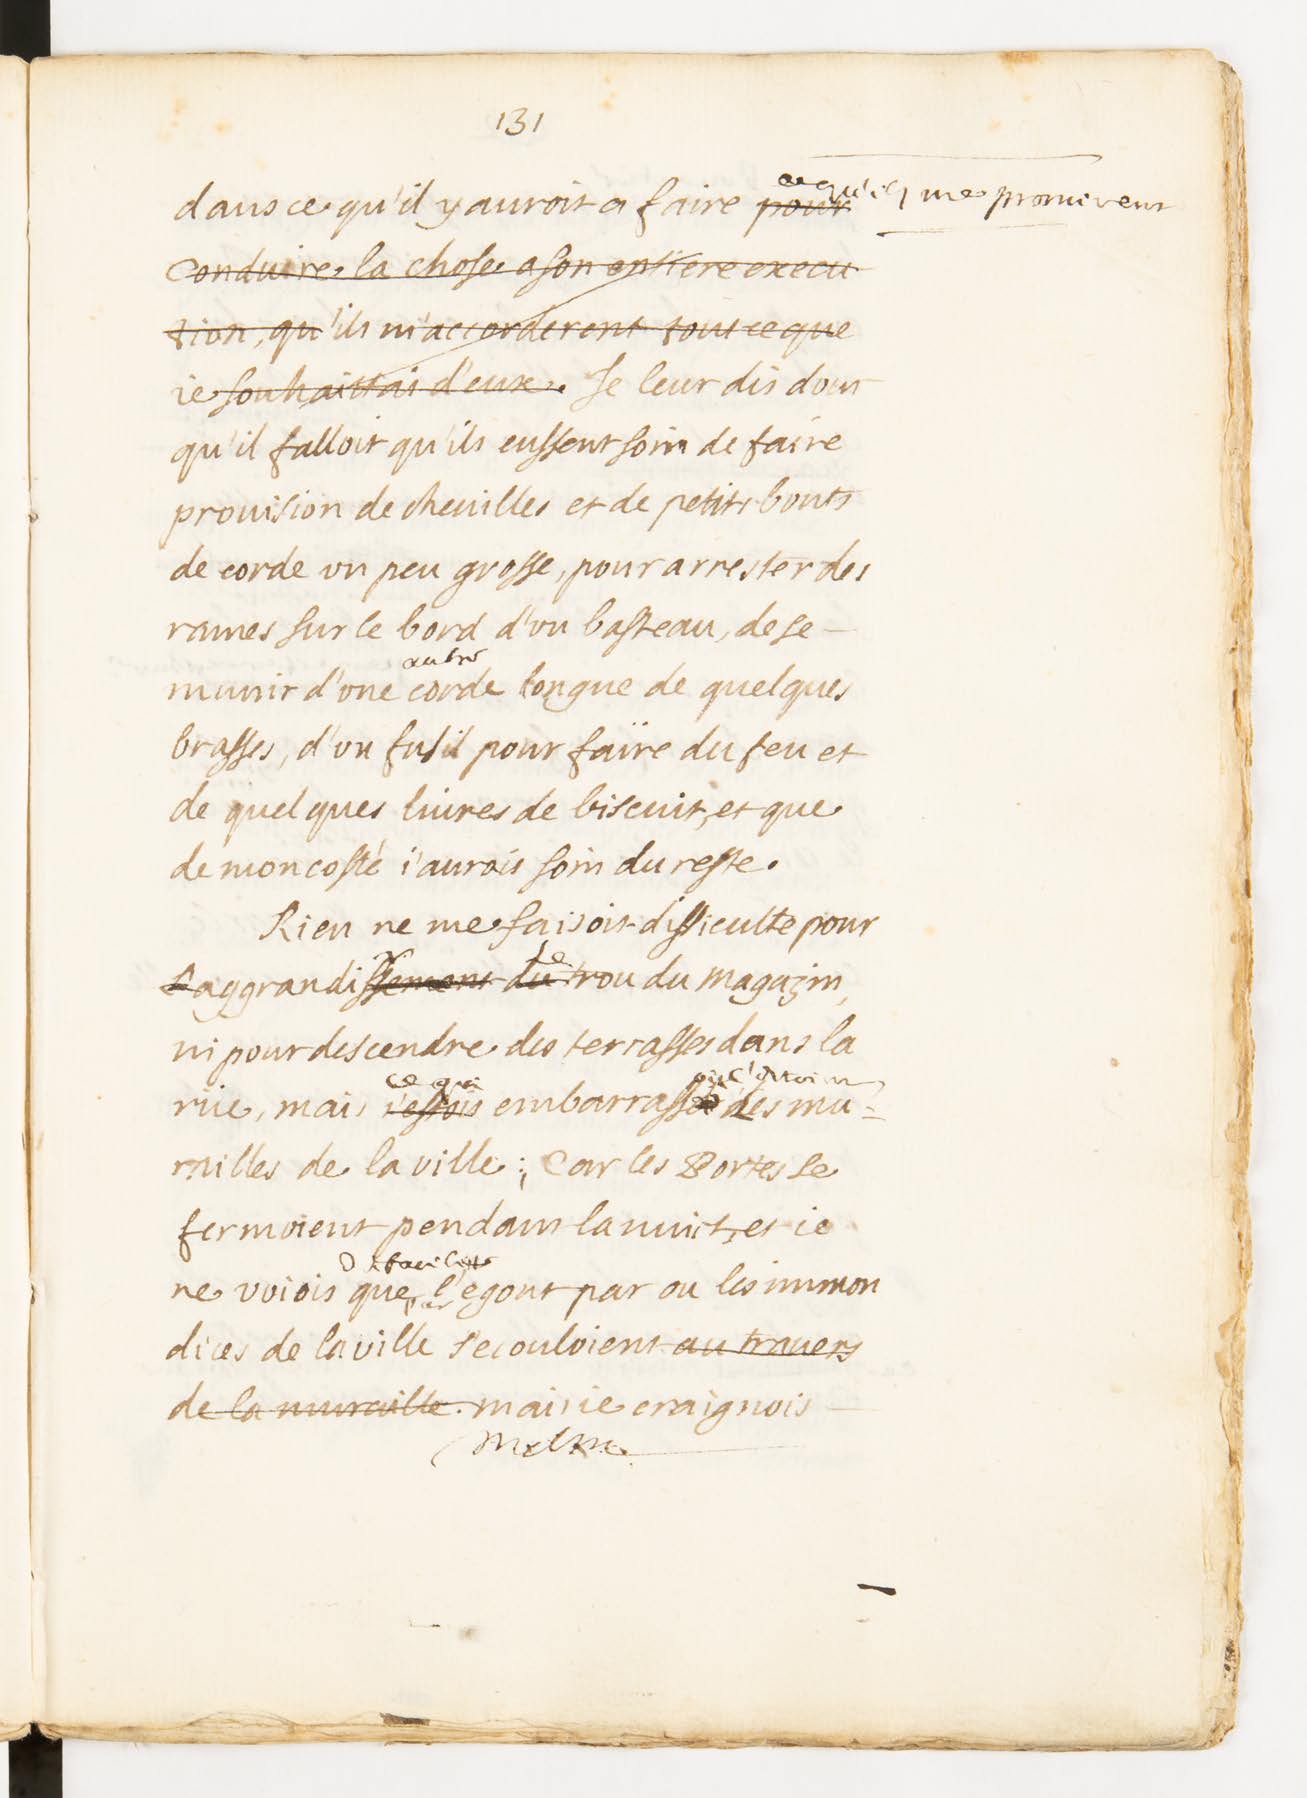 131
dans ce qu'il y auroit a faire pour ce qu'ils me promirent
conduire la chose a son entiere execu
tion, qu'ils m'accorderent tout ce que
ie souhaittais d'eux. Je leur dis donc
qu'il falloit qu'ils eussent soin de faire
prouision de cheuilles et de petits bouts
de corde vn peu grosse, pour arrester des
rames sur le bord d'vn basteau, de se
autre
munir d'vne corde longue de quelques
brasses, d'vn fusil pour faire du feu et
de quelques liures de biscuit, et que
de mon costé i'aurois soin du reste.
Rien ne me faisoit difficulte pour
l'aggrandissement du trou du magazin,
ni pour descendre des terrasses dans la
ce qui
rüe, mais i'estois embarrassé des mu-
railles de la ville ; Car les Portes se
fermoient pendant la nuict, et ie
ne voiois que l'egout par ou les immon
par
dices de la ville s'ecouloient au trauers
de la muraille. mais ie craignois